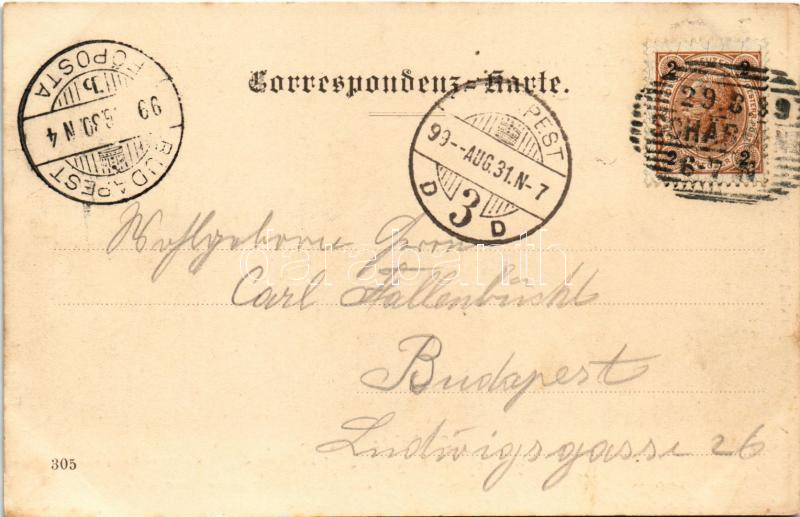 Correspondenz-Karte.
BUDAPEST
FŐPOSTA
99 30. N 4
PEST
99--AUG.31.N-7
D 3 D
2 2
29.8 99
CHAR
2 2
6-7 N
darabanth
Wohlgeboren Herrn
Carl Fallenbüchl
Budapest
Ludwigsgasse 26
305